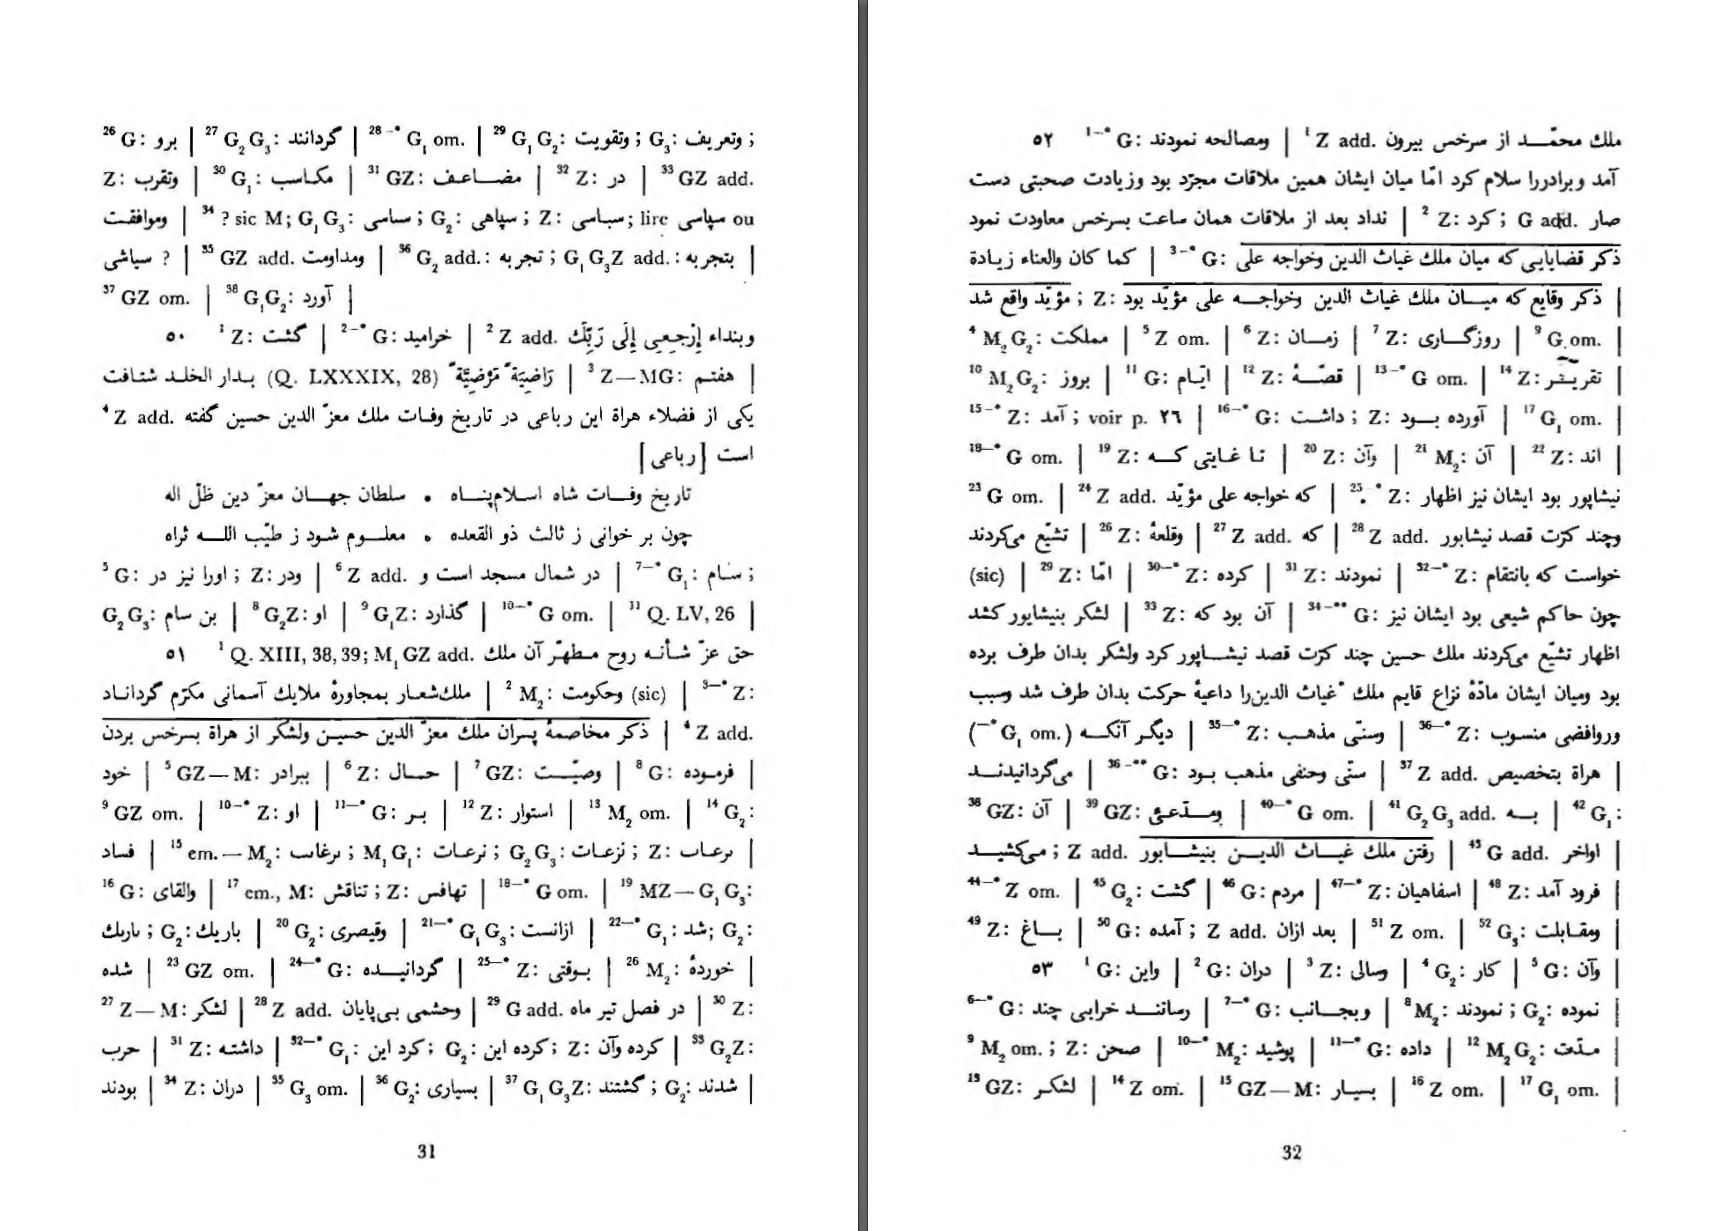 ²⁶ G: برو | ²⁷ G₂ G₃: گردانند | ²⁸⁻* G₁ om. | ²⁹ G₁ G₂: وتقویت ; G₃: وتعریف ;
Z: وتقرب | ³⁰ G₁: مکاسب | ³¹ GZ: مضاعف | ³² Z: در | ³³ GZ add.
وموافقت | ³⁴ ? sic M; G₁ G₃: سپاسی ; G₂: سپاهی ; Z: سپاسی ; lire سپاسی ou
سپاشی ? | ³⁵ GZ add. ومداومت | ³⁶ G₂ add.: تجربه ; G₁ G₃Z add.: بتجربه |
³⁷ GZ om. | ³⁸ G₁G₂: آورد |
۵۰ ¹ Z: گشت | ²⁻* G: خرامید | ² Z add. وبنداء اِرْجِعِی اِلَی رَبِّكِ
رَاضِیَةً مَرْضِیَّةً (Q. LXXXIX, 28) بدار الخلد شتافت | ³ Z—MG: هفتم |
⁴ Z add. یکی از فضلاء هراة این رباعی در تاریخ وفات ملك معزّ الدین حسین گفته
است [رباعی]
تاریخ وفات شاه اسلام‌پناه • سلطان جهان معزّ دین ظلّ اله
چون بر خوانی ز ثالث ذو القعده • معلوم شود ز طیّب اللـه ثراه
⁵ G: اورا نیز در ; Z: ودر | ⁶ Z add. در شمال مسجد است و | ⁷⁻* G₁: سام ;
G₂ G₃: بن سام | ⁸ G₂Z: او | ⁹ G₁Z: گذارد | ¹⁰⁻* G om. | ¹¹ Q. LV, 26 |
۵۱ ¹ Q. XIII, 38, 39; M₁ GZ add. حق عزّ شأنه روح مطهّر آن ملك
ملك‌شعار بمجاورۀ ملایك آسمانی مکرّم گرداناد | ² M₂: وحکومت (sic) | ³⁻* Z:
ذکر مخاصمۀ پسران ملك معزّ الدین حسین ولشکر از هراة بسرخس بردن | ⁴ Z add.
خود | ⁵ GZ—M: ببرادر | ⁶ Z: حال | ⁷ GZ: وصیّت | ⁸ G: فرموده |
⁹ GZ om. | ¹⁰⁻* Z: او | ¹¹⁻* G: بر | ¹² Z: استوار | ¹³ M₂ om. | ¹⁴ G₂:
فساد | ¹⁵ em.—M₂: نرغاب ; M₁G₁: نزعات ; G₂ G₃: نزعات ; Z: نرعاب |
¹⁶ G: والقای | ¹⁷ em., M: تناقش ; Z: تهافس | ¹⁸⁻* G om. | ¹⁹ MZ—G₁ G₃:
باریك ; G₂: باریك | ²⁰ G₂: وقیصری | ²¹⁻* G₁ G₃: ازانست | ²²⁻* G₁: شد ; G₂:
شده | ²³ GZ om. | ²⁴⁻* G: گردانیده | ²⁵⁻* Z: بوقتی | ²⁶ M₂: خوردۀ |
²⁷ Z—M: لشکر | ²⁸ Z add. وحشمی بی‌پایان | ²⁹ G add. در فصل تیر ماه | ³⁰ Z:
حرب | ³¹ Z: داشته | ³²⁻* G₁: کرد این ; G₂: کرده این ; Z: کرده وآن | ³³ G₂Z:
بودند | ³⁴ Z: دران | ³⁵ G₃ om. | ³⁶ G₂: بسیاری | ³⁷ G₁ G₃Z: گشتند ; G₂: شدند |
31
۵۲ ¹⁻* G: ومصالحه نمودند | ¹ Z add. ملك محمّد از سرخس بیرون
آمد وبرادررا سلام کرد امّا میان ایشان همین ملاقات مجرّد بود وزیادت صحبتی دست
نداد بعد از ملاقات همان ساعت بسرخس معاودت نمود | ² Z: کرد ; G add. صار
کما کان والعناء زیادة | ³⁻* G: ذکر قضایایی که میان ملك غیاث الدین وخواجه علی
مؤیّد واقع شد ; Z: ذکر وقایع که میان ملك غیاث الدین وخواجه علی مؤیّد بود |
⁴ M₂ G₂: مملکت | ⁵ Z om. | ⁶ Z: زمان | ⁷ Z: روزگاری | ⁹ G om. |
¹⁰ M₂G₂: بروز | ¹¹ G: ایّام | ¹² Z: قصّۀ | ¹³⁻* G om. | ¹⁴ Z: |
¹⁵⁻* Z: آمد ; voir p. ۲۶ | ¹⁶⁻* G: داشت ; Z: آورده بود | ¹⁷ G₁ om. |
¹⁸⁻* G om. | ¹⁹ Z: تا غایتی که | ²⁰ Z: وآن | ²¹ M₂: آن | ²² Z: اند |
²³ G om. | ²⁴ Z add. که خواجه علی مؤیّد | ²⁵⁻* Z: نیشاپور بود ایشان نیز اظهار
تشیّع می‌کردند | ²⁶ Z: وقلعۀ | ²⁷ Z add. که | ²⁸ Z add. وچند کرّت قصد نیشابور
(sic) | ²⁹ Z: امّا | ³⁰⁻* Z: کرده | ³¹ Z: نمودند | ³²⁻* Z: خواست که بانتقام
لشکر بنیشاپور کشد | ³³ Z: آن بود که | ³⁴⁻** G: چون حاکم شیعی بود ایشان نیز
اظهار تشیّع می‌کردند ملك حسین چند کرّت قصد نیشاپور کرد ولشکر بدان طرف برده
بود ومیان ایشان مادّۀ نزاع قایم ملك *غیاث الدین‌را داعیۀ حرکت بدان طرف شد وسبب
دیگر آنکه (⁻* G₁ om.) | ³⁵⁻* Z: وسنّی مذهب | ³⁶⁻* Z: وروافضی منسوب
می‌گردانیدند | ³⁶⁻** G: سنّی وحنفی مذهب بود | ³⁷ Z add. هراة بتخصیص |
³⁸ GZ: آن | ³⁹ GZ: ومدّعی | ⁴⁰⁻* G om. | ⁴¹ G₂ G₃ add. به | ⁴² G₁:
می‌کشید ; Z add. رفتن ملك غیاث الدین بنیشاپور | ⁴³ G add. اواخر |
⁴⁴⁻* Z om. | ⁴⁵ G₂: گشت | ⁴⁶ G: مردم | ⁴⁷⁻* Z: اسفاهیان | ⁴⁸ Z: فرود آمد |
⁴⁹ Z: باغ | ⁵⁰ G: آمده ; Z add. بعد ازان | ⁵¹ Z om. | ⁵² G₃: ومقابلت |
۵۳ ¹ G: واین | ² G: دران | ³ Z: وسالی | ⁴ G₂: کار | ⁵ G: وآن |
⁶⁻* G: رسانند خرابی چند | ⁷⁻* G: وبجانب | ⁸ M₂: نمودند ; G₂: نموده |
⁹ M₂ om. ; Z: صحن | ¹⁰⁻* M₂: پوشید | ¹¹⁻* G: داده | ¹² M₂ G₂: مدّت |
¹³ GZ: لشکر | ¹⁴ Z om. | ¹⁵ GZ—M: بسیار | ¹⁶ Z om. | ¹⁷ G₁ om. |
32